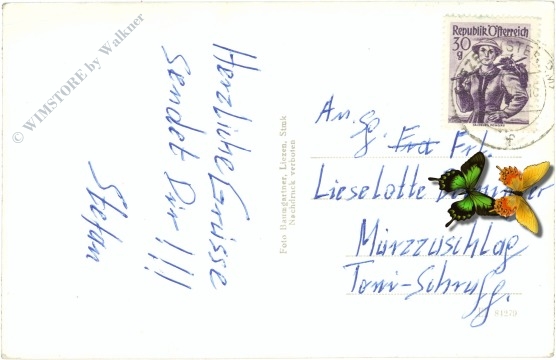 © WIMSTORE by Walkner
Herzliche Grüsse
sendet Dir !!!
Stefan
Foto Baumgartner, Liezen, Stmk
Nachdruck verboten
Republik Österreich
30
g
An.
Frl.
Lieselotte
Mürzzuschlag
Toni-Schruff.